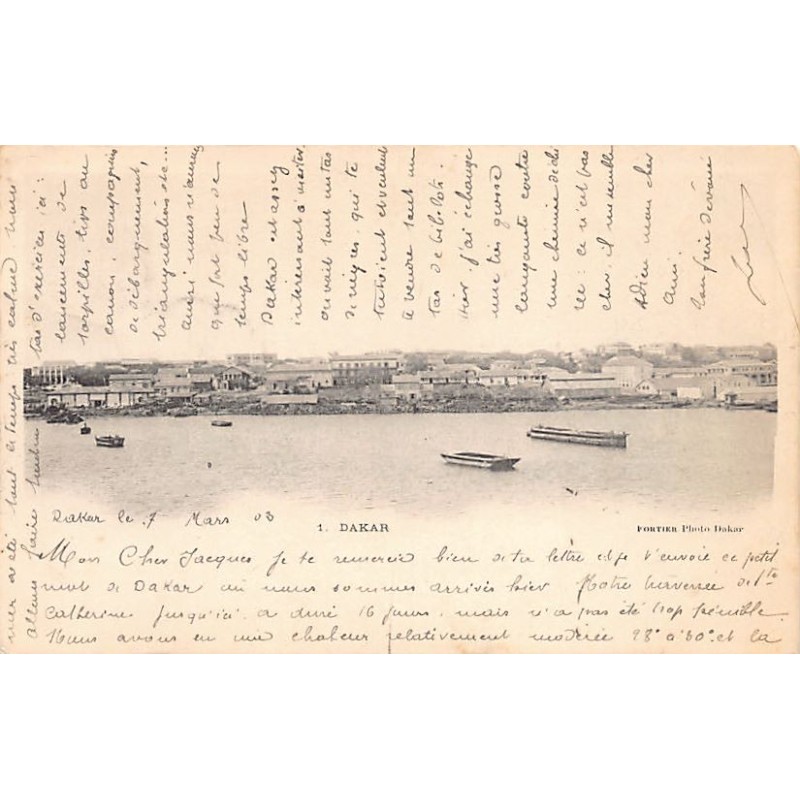 1. DAKAR
FORTIER Photo Dakar
Dakar le 7 Mars 03
Mon Cher Jacques je te remercie bien de ta lettre et je t'envoie ce petit
mot de Dakar où nous sommes arrivés hier Notre traversée de Ste
Catherine jusqu'ici a duré 16 jours. mais n'a pas été trop pénible.
Nous avons eu une chaleur relativement modérée 28° à 30° et la
mer a été tout le temps très calme nous
allons faire
tas d'exercices ici:
lancements de
torpilles, tirs au
canon, compagnies
de débarquement,
triangulations etc...
aussi nous n'aurons
que fort peu de
temps libre
Dakar est assez
intéressant à visiter
on voit tout un tas
de nègres qui te
tutoient et veulent
à vendre tout un
tas de bibelots.
Hier j'ai échangé
une très grosse
langouste contre
une chemise déchi
rée: ce n'est pas
cher, il me semble
Adieu mon cher
ami.
Ton frère dévoué